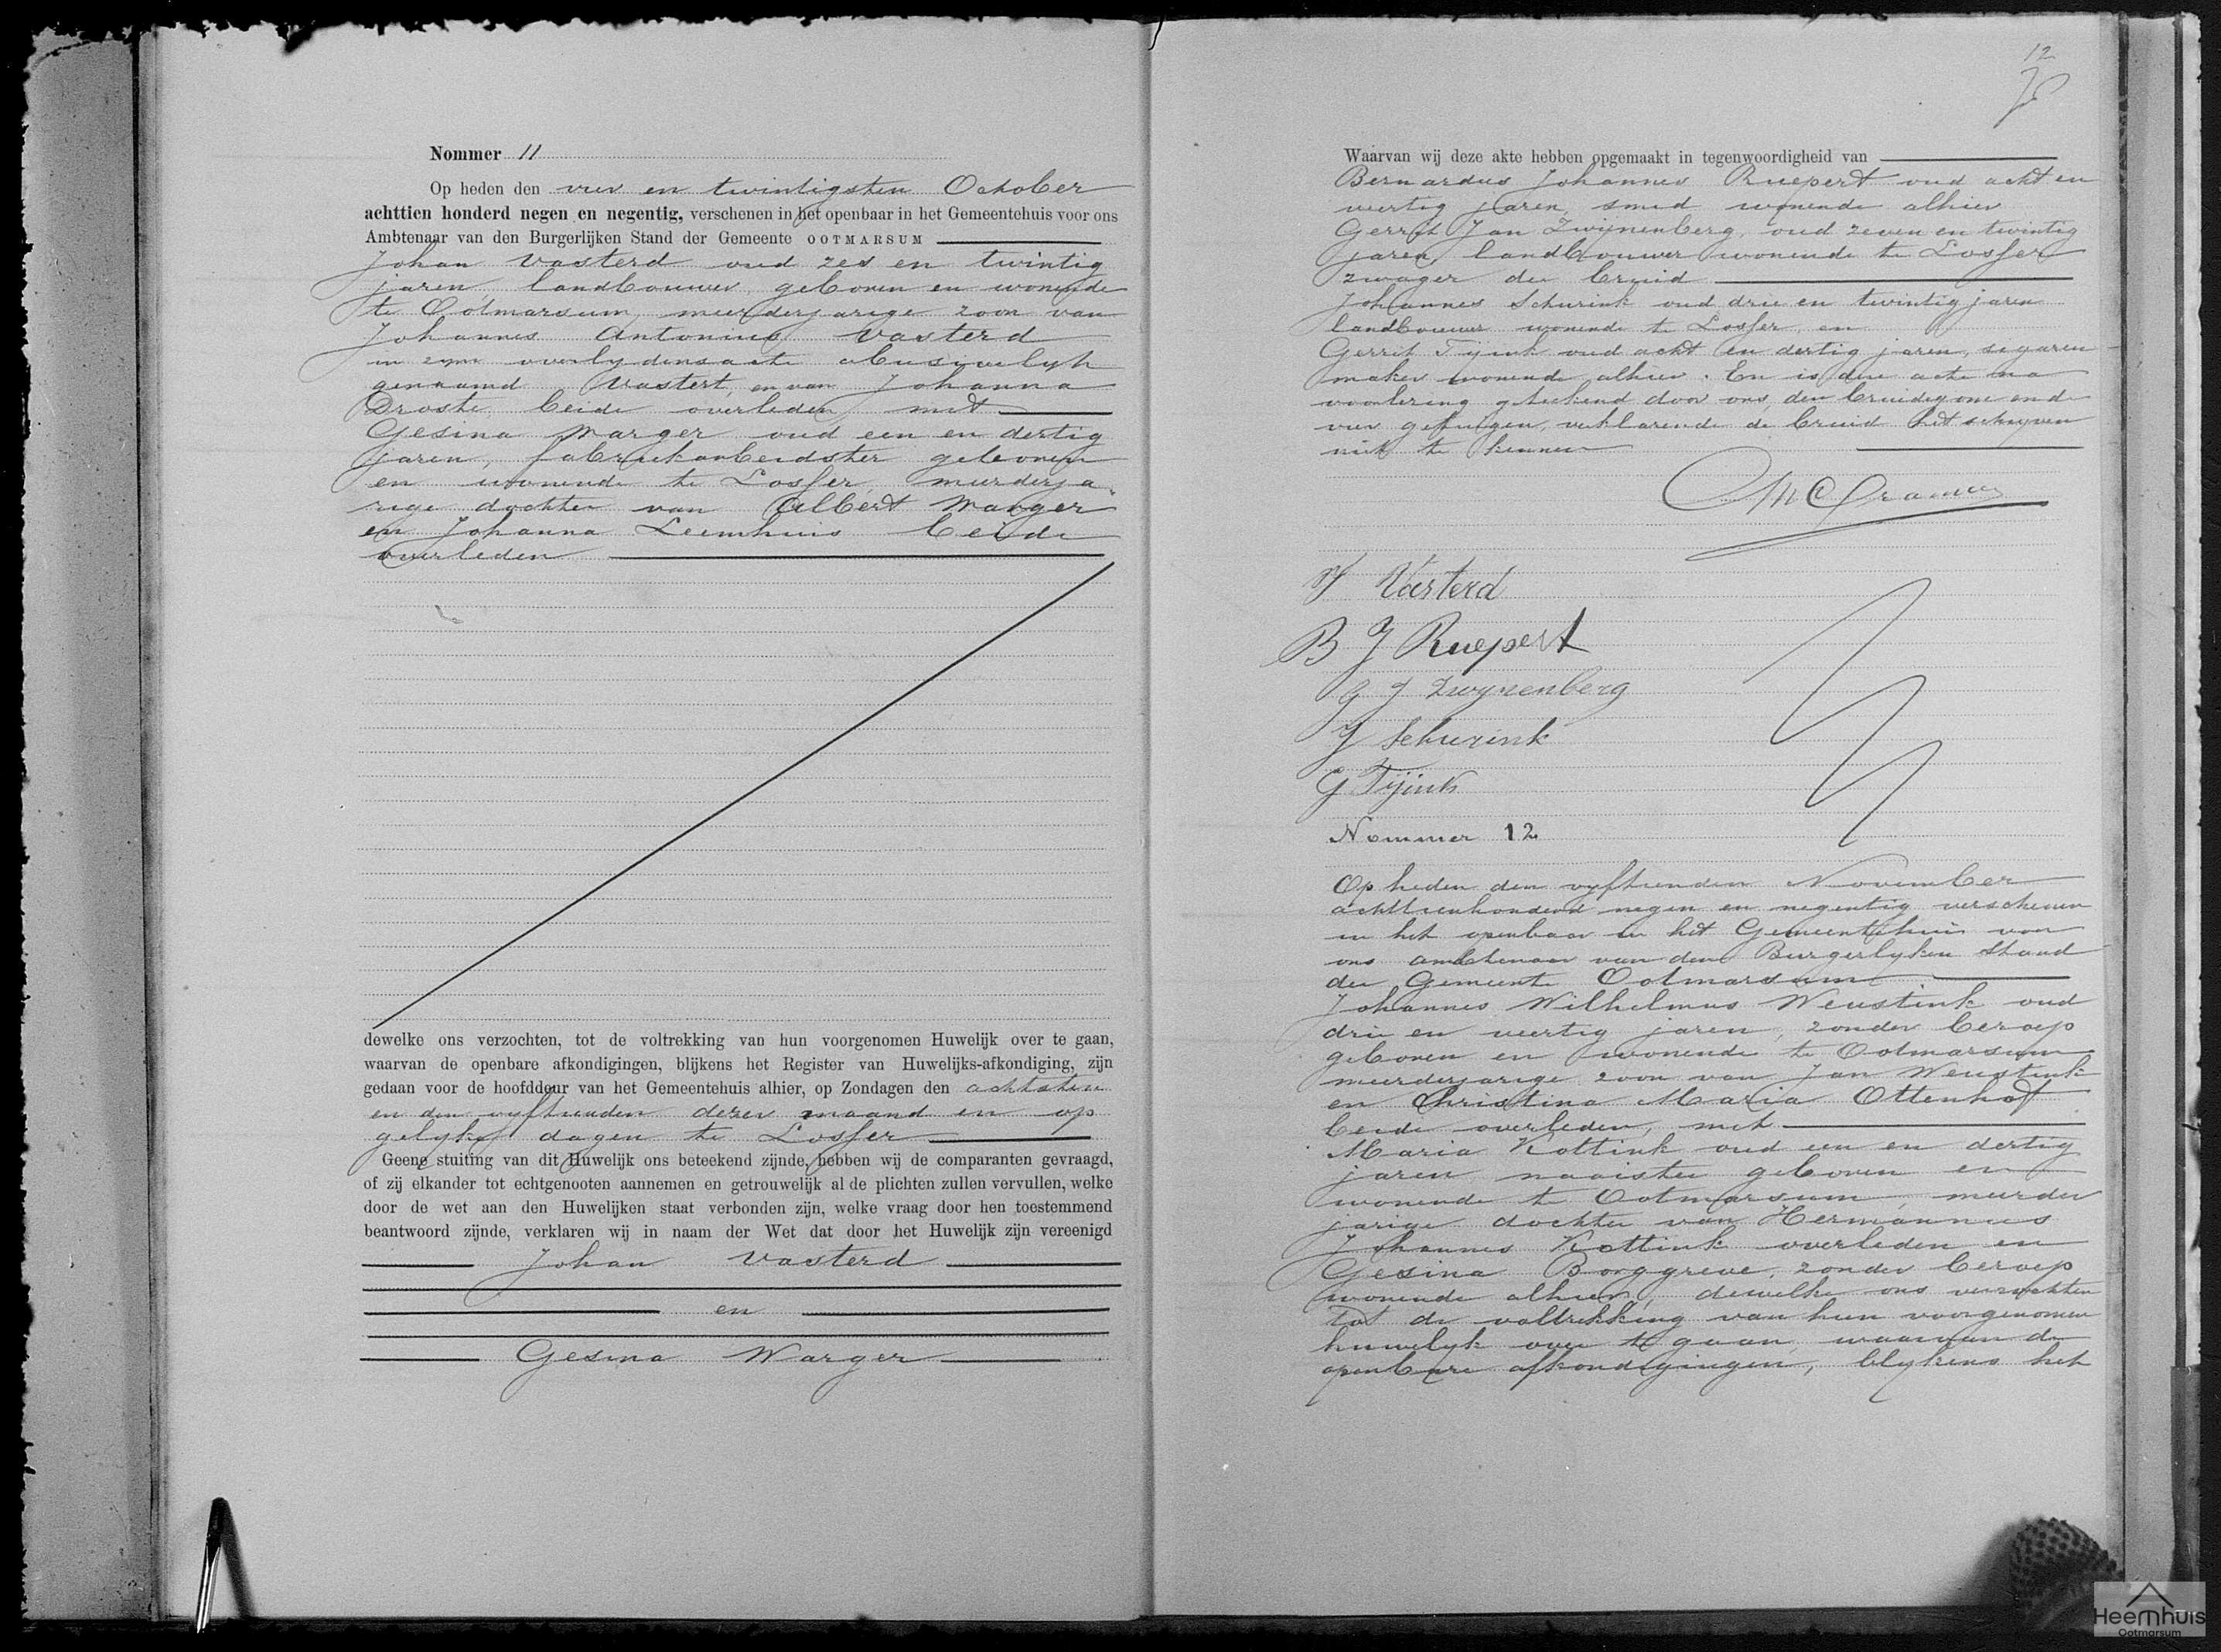 Nommer 11
Op heden den vier en twintigsten October
achttien honderd negen en negentig, verschenen in het openbaar in het Gemeentehuis voor ons
Ambtenaar van den Burgerlijken Stand der Gemeente OOTMARSUM
Johan Vasterd oud zes en twintig
jaren landbouwer, geboren en wonende
te Ootmarsum, meerderjarige zoon van
Johannes Antonius Vasterd
in zyne overlydensacte abusivelyk
genaamd Vastert, en van Johanna
Droste beide overleden, met
Gesina Warger oud een en dertig
jaren, fabriekarbeidster geboren
en wonende te Losser, meerderja-
rige dochter van Albert Warger
en Johanna Leemhuis beide
overleden
dewelke ons verzochten, tot de voltrekking van hun voorgenomen Huwelijk over te gaan,
waarvan de openbare afkondigingen, blijkens het Register van Huwelijks-afkondiging, zijn
gedaan voor de hoofddeur van het Gemeentehuis alhier, op Zondagen den achtsten
en den vyftienden dezer maand en op
gelyke dagen te Losser
Geene stuiting van dit Huwelijk ons beteekend zijnde, hebben wij de comparanten gevraagd,
of zij elkander tot echtgenooten aannemen en getrouwelijk al de plichten zullen vervullen, welke
door de wet aan den Huwelijken staat verbonden zijn, welke vraag door hen toestemmend
beantwoord zijnde, verklaren wij in naam der Wet dat door het Huwelijk zijn vereenigd
Johan Vasterd
en
Gesina Warger
12
Waarvan wij deze akte hebben opgemaakt in tegenwoordigheid van
Bernardus Johannes Ruepert oud acht en
veertig jaren, smid wonende alhier
Gerrit Jan Zwijnenberg, oud zeven en twintig
jaren, landbouwer wonende te Losser
zwager der bruid
Johannes Schurink oud drie en twintig jaren
landbouwer wonende te Losser, en
Gerrit Tijink oud acht en dertig jaren, sigaren-
maker wonende alhier. En is deze acte na
voorlezing geteekend door ons, den bruidegom en de
vier getuigen, verklarende de bruid het schryven
niet te kennen
Cramer
J Vasterd
B J Ruepert
G J Zwynenberg
J Schurink
G Tijink
Nommer 12
Op heden den vyftienden November
achttienhonderd negen en negentig verschenen
in het openbaar in het Gemeentehuis voor
ons ambtenaar van den Burgerlyken Stand
der Gemeente Ootmarsum
Johannes Wilhelmus Weustink oud
drie en veertig jaren, zonder beroep
geboren en wonende te Ootmarsum
meerderjarige zoon van Jan Weustink
en Christina Maria Ottenhof
beide overleden, met
Maria Kottink oud een en dertig
jaren, naaister geboren en
wonende te Ootmarsum, meerder
jarige dochter van Hermannus
Johannes Kottink overleden en
Gesina Borggreve, zonder beroep
wonende alhier, dewelke ons verzochten
tot de voltrekking van hun voorgenomen
huwelyk over te gaan, waarvan de
openbare afkondigingen, blykens het
Heemhuis
Ootmarsum